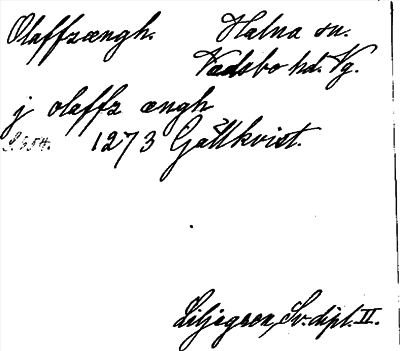 Olaffzængh. Halna sn.
Vadsbo hd. Vg.
j olaffz ængh
S. 654. 1273 Gällkvist.
Liljegren, Sv. dipl. II.